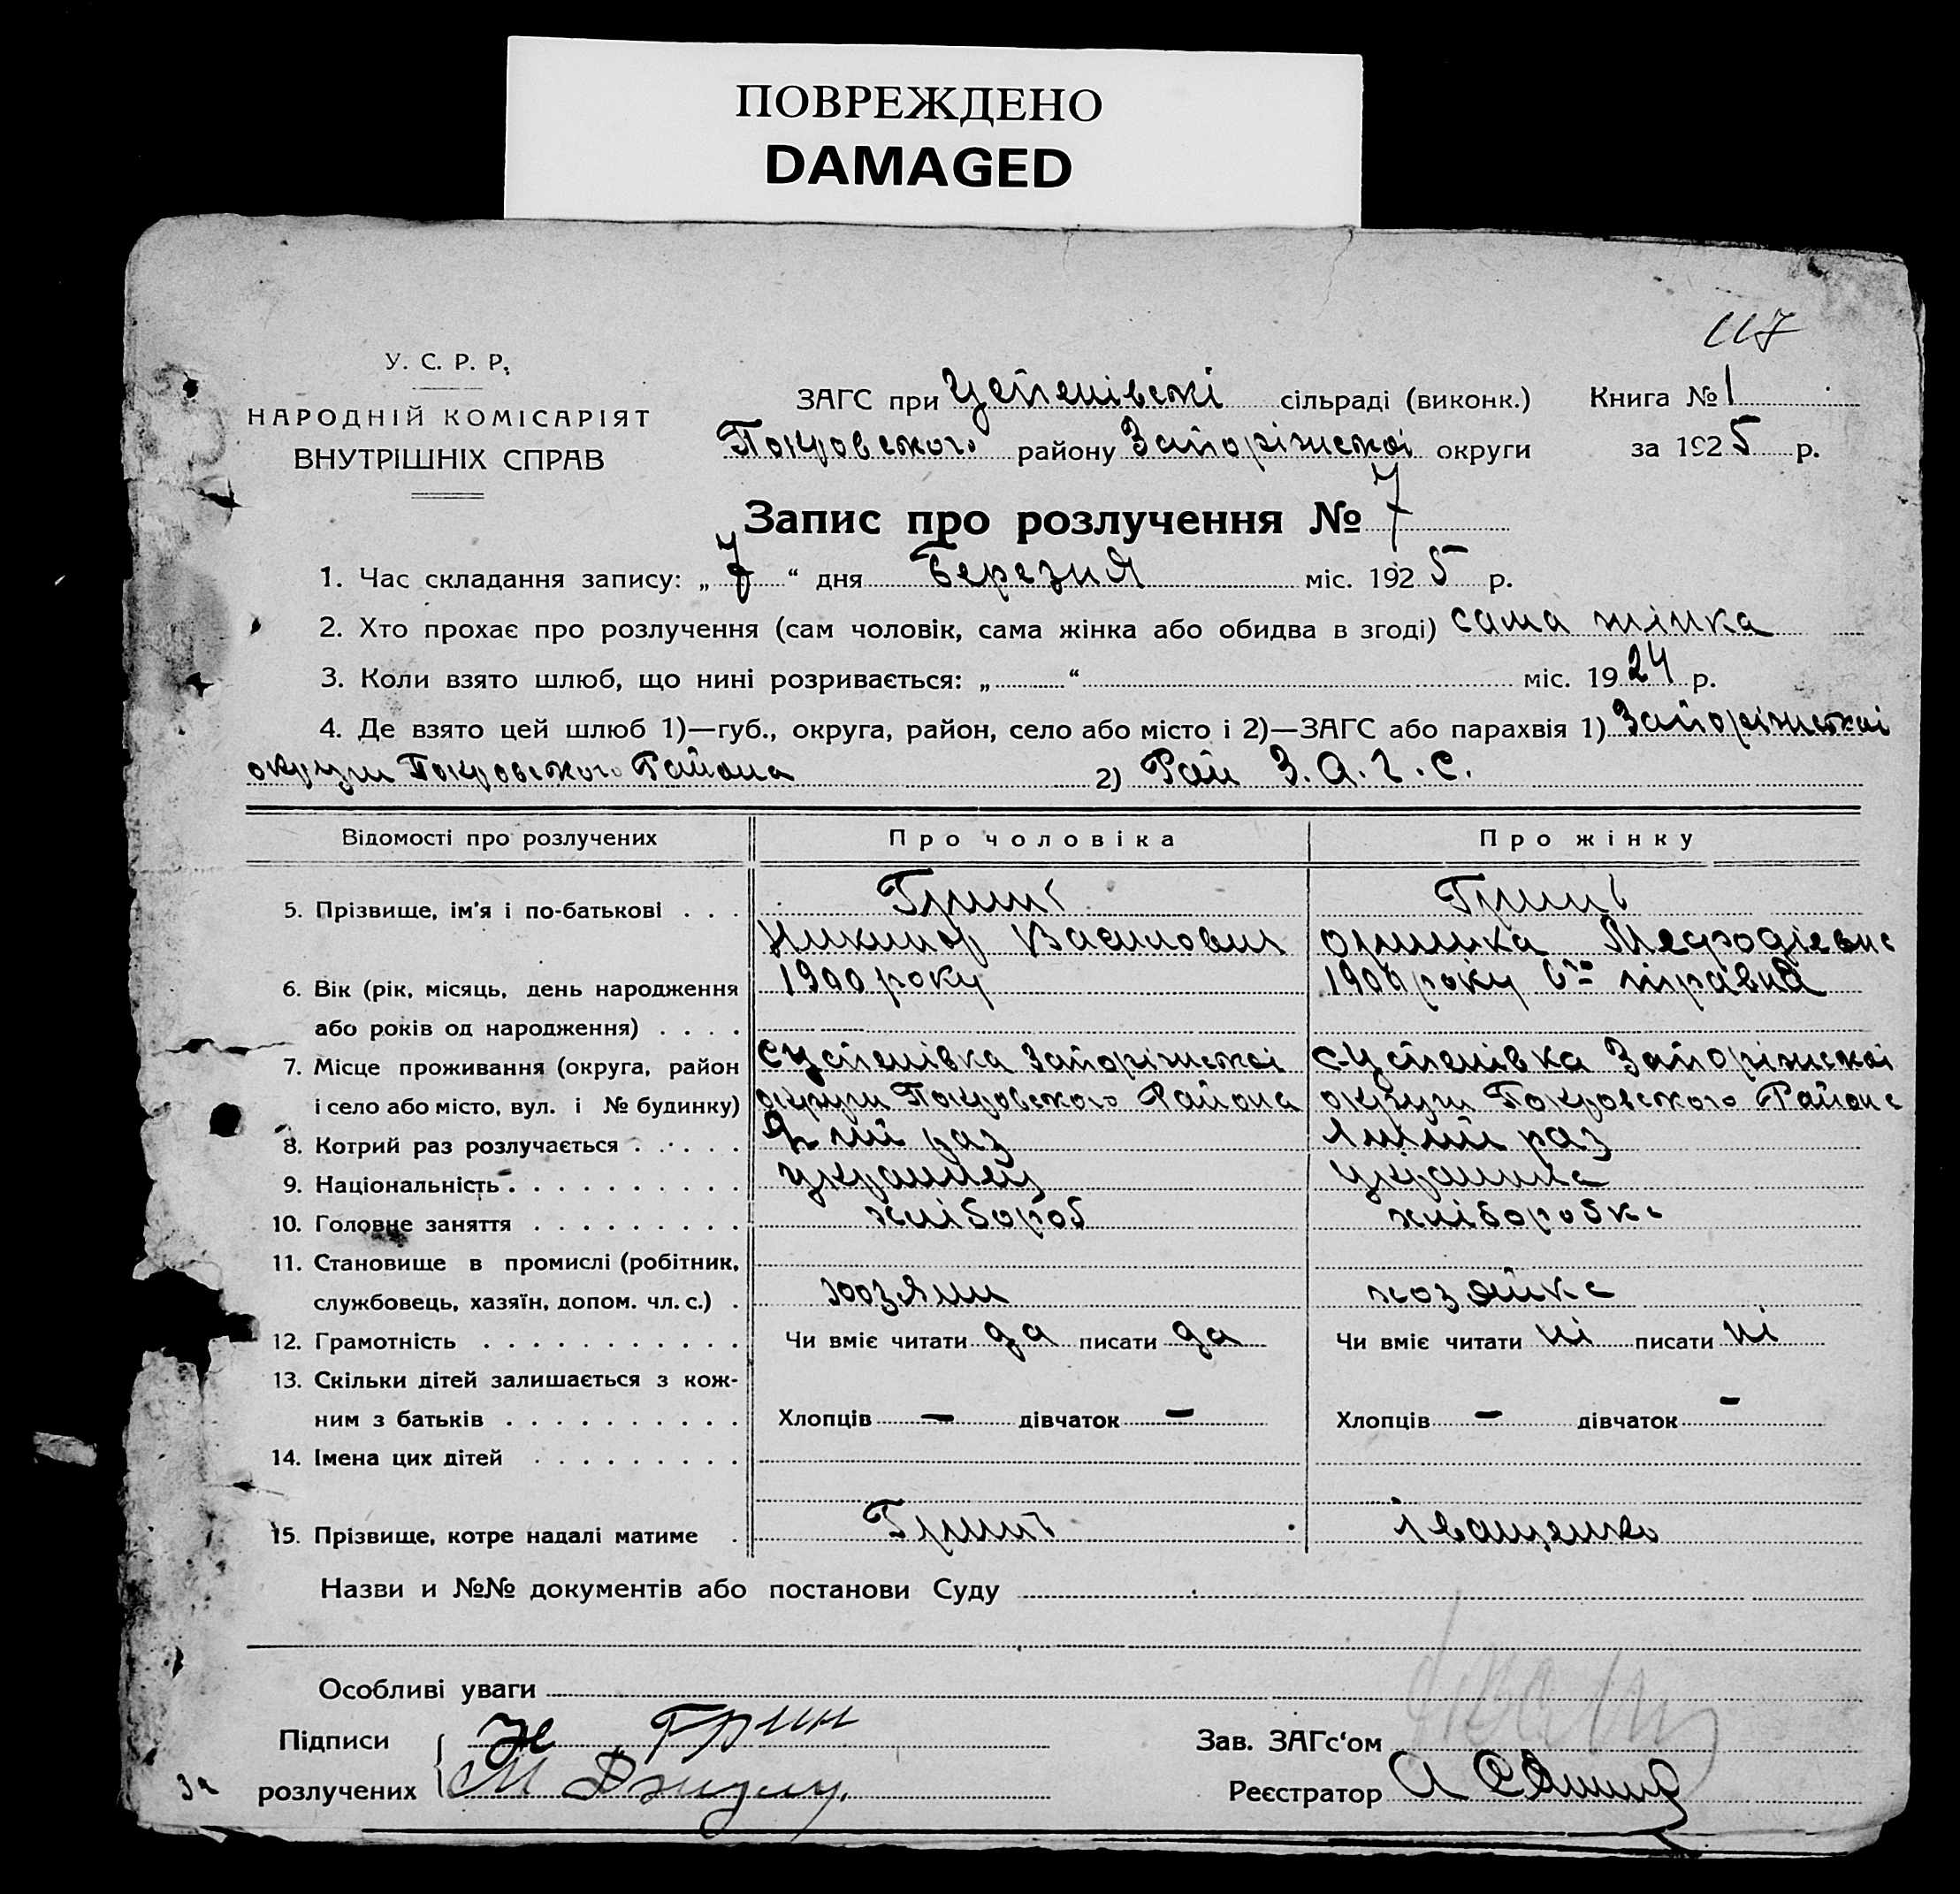 ПОВРЕЖДЕНО
DAMAGED
117
У. С. Р. Р.
НАРОДНІЙ КОМІСАРІЯТ
ВНУТРІШНІХ СПРАВ
ЗАГС при сільраді (виконк.) Книга № 1
Покровського району Запоріжської округи за 1925 р.
Запис про розлучення № 7
1. Час складання запису: „7“ дня Березня міс. 1925 р.
2. Хто прохає про розлучення (сам чоловік, сама жінка або обидва в згоді) сама жінка
3. Коли взято шлюб, що нині розривається: „ “ міс. 1924 р.
4. Де взято цей шлюб 1)—губ., округа, район, село або місто і 2)—ЗАГС або парахвія 1) Запоріжської
округи Покровського Района 2) Рай З.А.Г.С.
Відомості про розлучених Про чоловіка Про жінку
5. Прізвище, ім'я і по-батькові . . . Гринь Гринь
Никифор Василович Оришка Мефодіевна
6. Вік (рік, місяць, день народження 1900 року 1900 року 6го
або років од народження) . . . .
7. Місце проживання (округа, район Запоріжської Запоріжської
і село або місто, вул. і № будинку) округи Покровського Района округи Покровського Района
8. Котрий раз розлучається . . . . . раз раз
9. Національність . . . . . . . . . . українец українка
10. Головне заняття . . . . . . . . . хлібороб хліборобка
11. Становище в промислі (робітник,
службовець, хазяїн, допом. чл. с.) . хозяин хозяйка
12. Грамотність . . . . . . . . . . . Чи вміє читати да писати да Чи вміє читати ні писати ні
13. Скільки дітей залишається з кож-
ним з батьків . . . . . . . . . . Хлопців — дівчаток — Хлопців — дівчаток —
14. Імена цих дітей . . . . . . . . .
15. Прізвище, котре надалі матиме . Гринь Іващенко
Назви и №№ документів або постанови Суду
Особливі уваги
Підписи Н Грин Зав. ЗАГс'ом
розлучених М Реєстратор А